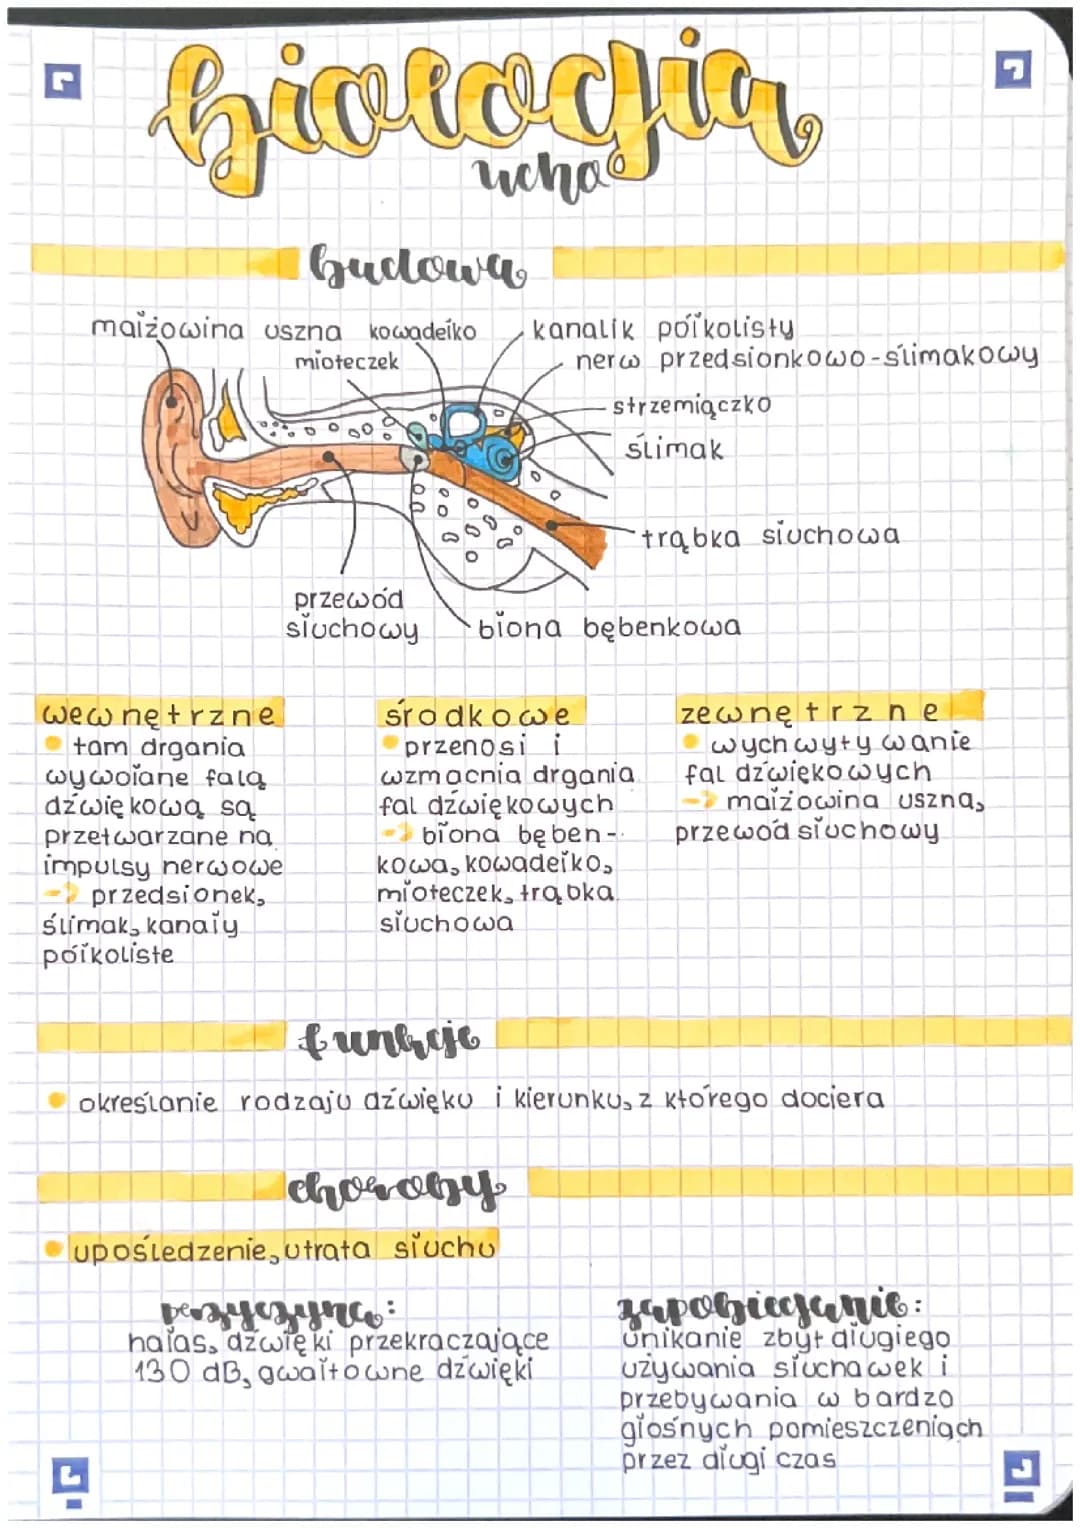 biologia
ucha
budowa
małżowina uszna
kowadełko
młoteczek
kanalik półkolisty
nerw przedsionkowo-ślimakowy
strzemiączko
ślimak
trąbka słuchowa
przewód
słuchowy
błona bębenkowa
wewnętrzne
tam drgania
wywołane falą
dźwiękową są
przetwarzane na
impulsy nerwowe
-> przedsionek,
ślimak, kanały
półkoliste
środkowe
przenosi i
wzmacnia drgania
fal dźwiękowych
-> błona bęben-
kowa, kowadełko,
młoteczek, trąbka
słuchowa
zewnętrzne
wychwytywanie
fal dźwiękowych
-> małżowina uszna,
przewód słuchowy
funkcje
określanie rodzaju dźwięku i kierunku, z którego dociera
choroby
upośledzenie, utrata słuchu
przyczyna:
hałas, dźwięki przekraczające
130 dB, gwałtowne dźwięki
zapobieganie:
unikanie zbyt długiego
używania słuchawek i
przebywania w bardzo
głośnych pomieszczeniach
przez długi czas